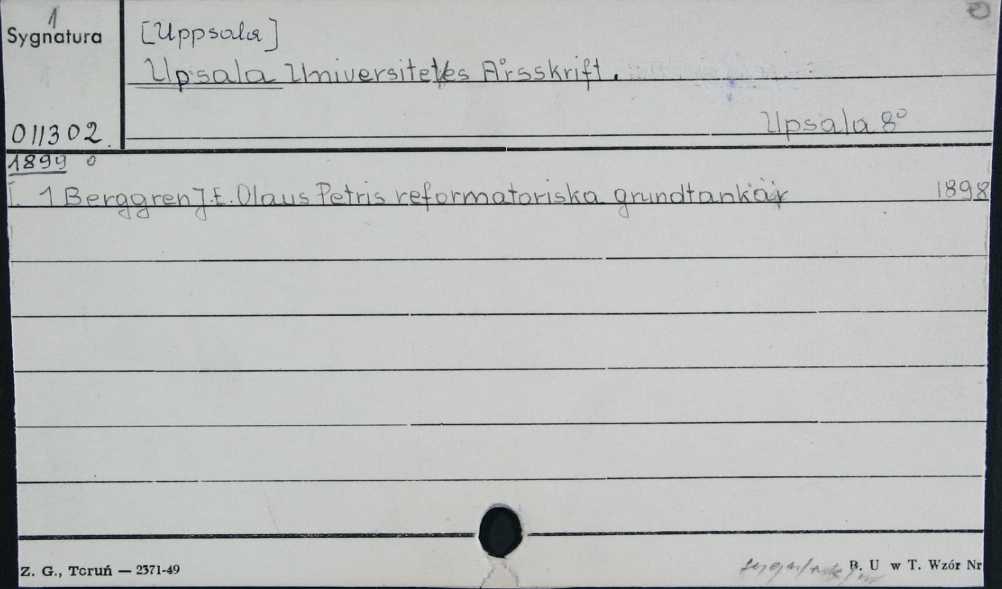 1
Sygnatura
[Uppsala]
Upsala Universitetes Årsskrift.
011302.
Upsala 8°
1899 o
I. 1 Berggren J.E. Olaus Petris reformatoriska grundtankar 1898
Z. G., Toruń — 2371-49
B. U w T. Wzór Nr